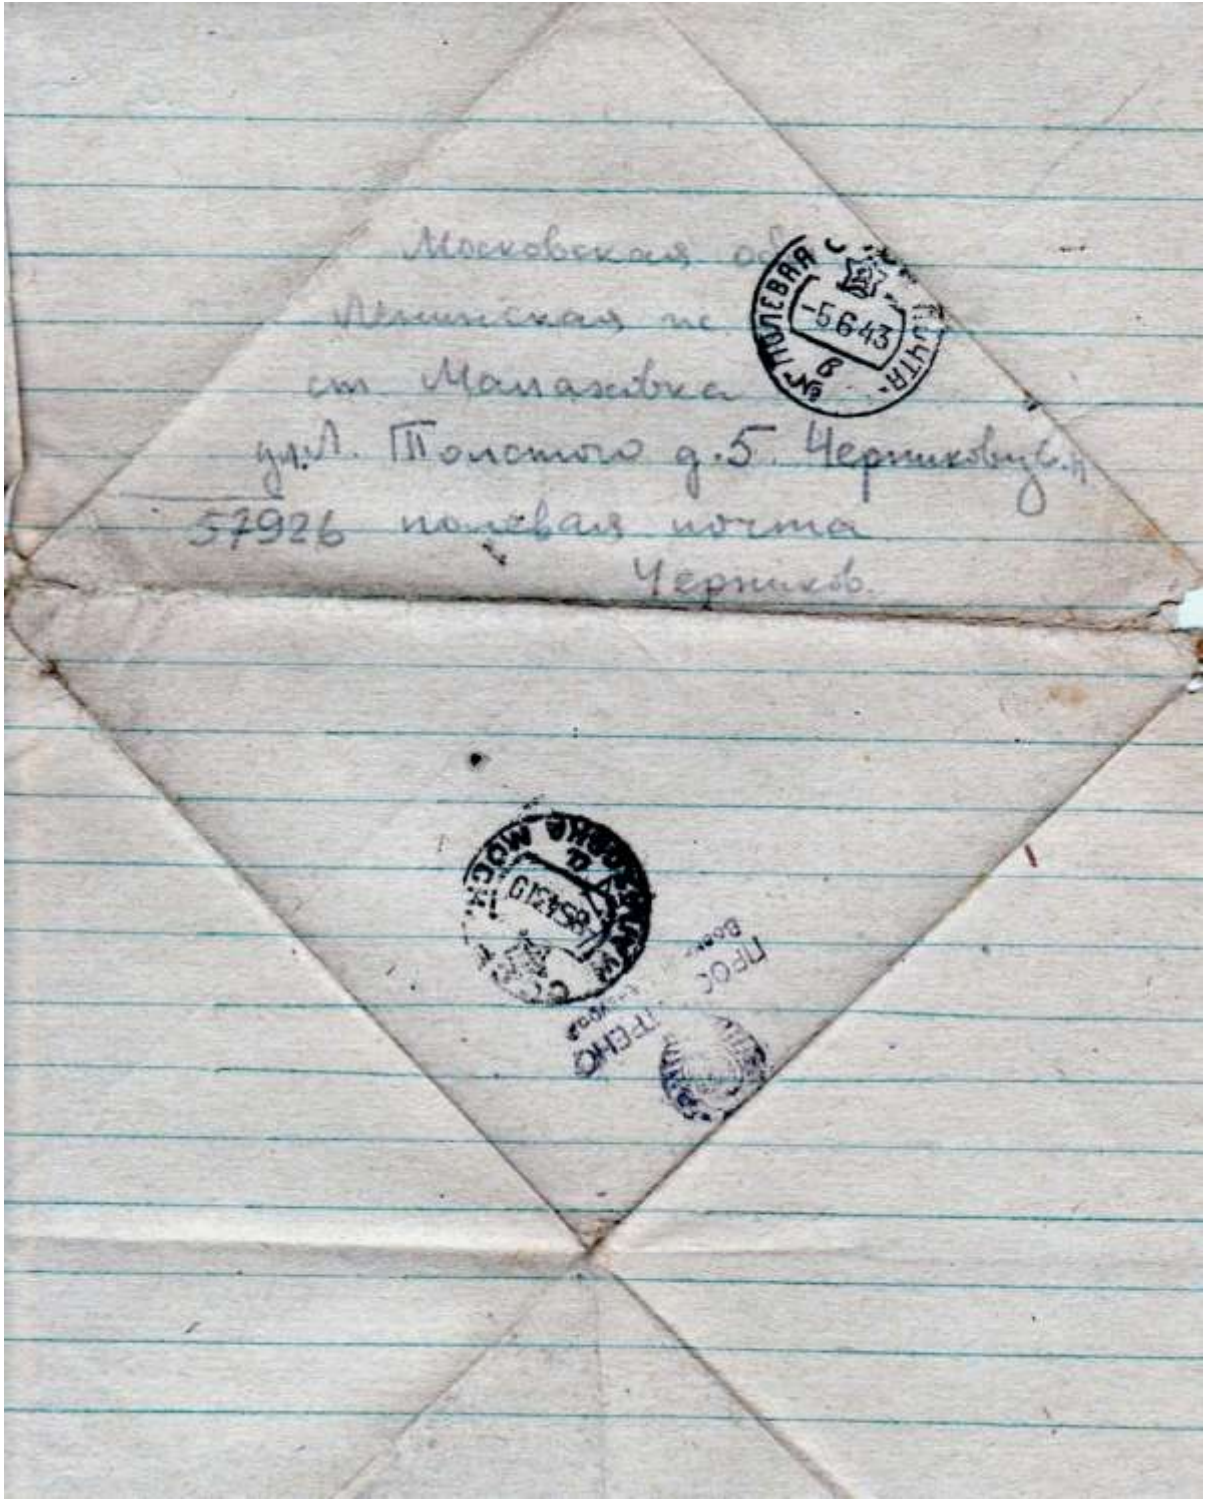 Московская об
Ленинская
ст Малаховка
ул. Л. Толстого д. 5. Черникову С. П
57926 полевая почта
Черников.
ПОЛЕВАЯ ПОЧТА
-5 6 43
в
МАЛАХОВКА МОСК.
ПРОСМОТРЕНО